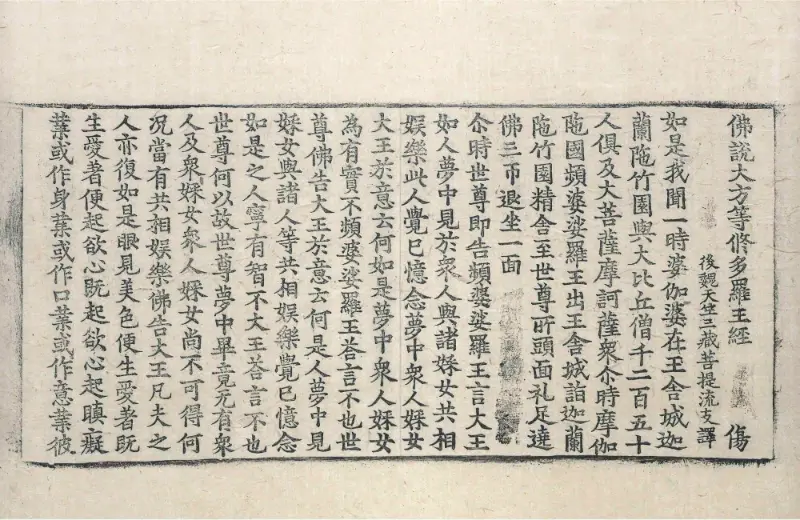 佛說大方等脩多羅王經 傷
後魏天竺三藏菩提流支譯
如是我聞一時婆伽婆在王舍城迦
蘭陁竹園與大比丘僧千二百五十
人俱及大菩薩摩訶薩衆尒時摩伽
陁國頻婆娑羅王出王舍城詣迦蘭
陁竹園精舍至世尊所頭面礼足遶
佛三帀退坐一面
尒時世尊即告頻婆娑羅王言大王
如人夢中見於衆人與諸婇女共相
娯樂此人覺已憶念夢中衆人婇女
大王於意云何如是夢中衆人婇女
為有實不頻婆娑羅王荅言不也世
尊佛告大王於意云何是人夢中見
婇女與諸人等共相娯樂覺已憶念
如是之人寧有智不大王荅言不也
世尊何以故世尊夢中畢竟无有衆
人及衆婇女衆人婇女尚不可得何
况當有共相娯樂佛告大王凡夫之
人亦復如是眼見美色便生愛著既
生愛著便起欲心既起欲心起瞋癡
業或作身業或作口業或作意業彼